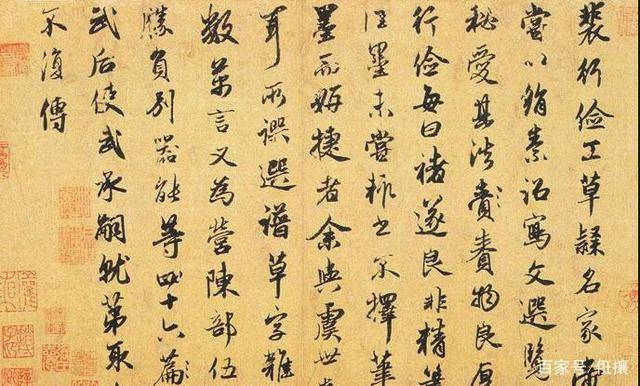 裴行儉工草隸名家
嘗以絹素詔寫文選覽
秘愛其法賚賚物良厚
行儉每曰褚遂良非精筆
佳墨未嘗輒書不擇筆
墨而妍捷者余與虞世
耳所譔選譜草字雜
數萬言又為營陳部伍
勝負別器能等四十六篇
武后使武承嗣就第取
不復傳
百家号/